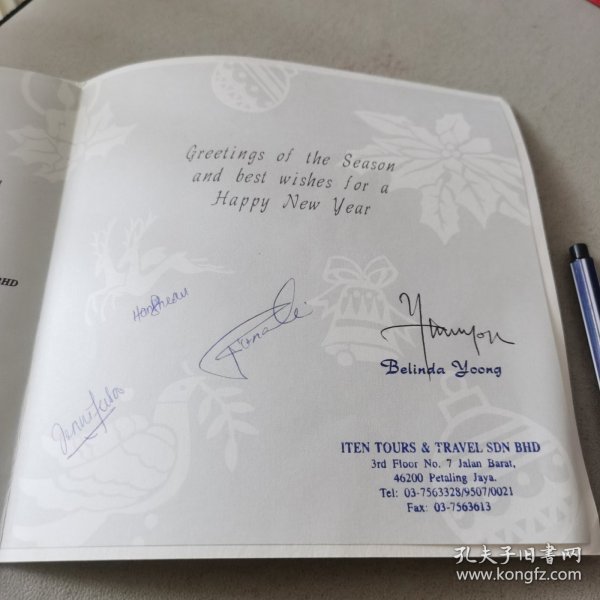 Greetings of the Season
and best wishes for a
Happy New Year
Belinda Yoong
ITEN TOURS & TRAVEL SDN BHD
3rd Floor No. 7 Jalan Barat,
46200 Petaling Jaya.
Tel: 03-7563328/9507/0021
Fax: 03-7563613
BHD
孔夫子旧书网
www.kongfz.com